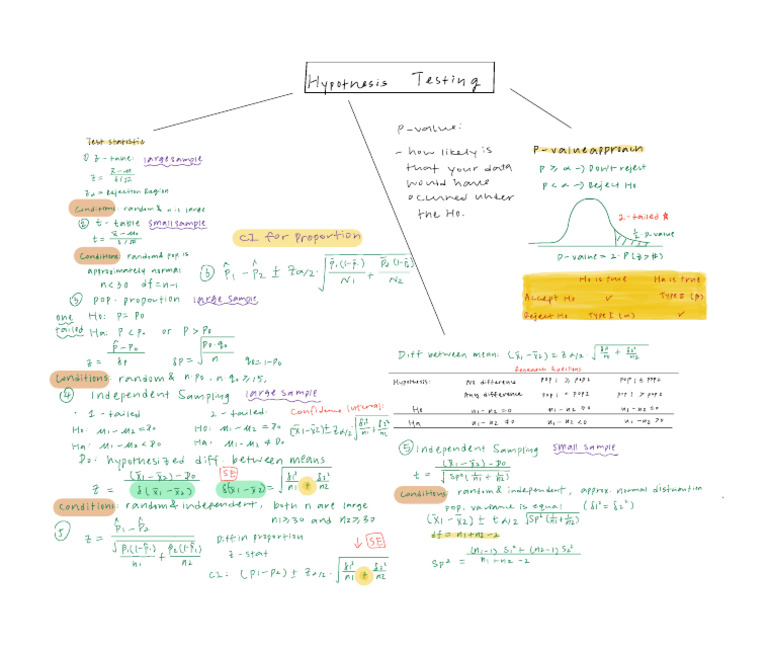 Hypothesis Testing
Test statistic
① z-table: large sample
z = x̄-μ0 / s/√n
Zα = Rejection Region
Conditions: random & n is large
② t-table small sample
t = x̄-μ0 / s/√n
Conditions: random & pop. is
approximately normal
n<30 df=n-1
③ pop. proportion large sample
one tailed
Ho: p = p0
Ha: p < p0 or p > p0
z = p̂-p0 / σp̂
σp̂ = √(p0·q0 / n) q0=1-p0
Conditions: random & n·p0, n q0 ≥ 15,
④ Independent Sampling large sample
· 1-tailed 2-tailed:
Ho: μ1-μ2=D0 Ho: μ1-μ2=D0
Ha: μ1-μ2<D0 Ha: μ1-μ2≠D0
Confidence Interval:
(x̄1-x̄2) ± zα/2·√(σ1²/n1 + σ2²/n2)
D0: hypothesized diff. between means
z = (x̄1-x̄2)-D0 / σ(x̄1-x̄2)
SE
σ(x̄1-x̄2) = √(σ1²/n1 + σ2²/n2)
Conditions: random & independent, both n are large
n1≥30 and n2≥30
⑤ z = p̂1-p̂2 / √(p̂1(1-p̂1)/n1 + p̂2(1-p̂2)/n2)
Diff in proportion
z-stat
↓ SE
CI: (p1-p2) ± zα/2·√(σ1²/n1 + σ2²/n2)
CI for Proportion
③ p̂1-p̂2 ± zα/2·√(p̂1(1-p̂1)/N1 + p̂2(1-p̂2)/N2)
P-value:
- how likely is
that your data
would have
occurred under
the Ho.
P-value approach
P ≥ α → Don't reject
P < α → Reject Ho
2-tailed ☆
½ p-value
P-value = 2·P(z>#)
Ho is true Ha is true
Accept Ho ✓ Type II (β)
Reject Ho Type I (α) ✓
Research Questions
Hypothesis: No difference pop1 ≥ pop2 pop1 ≤ pop2
Any difference pop1 < pop2 pop1 > pop2
Ho μ1-μ2=0 μ1-μ2≥0 μ1-μ2≤0
Ha μ1-μ2≠0 μ1-μ2<0 μ1-μ2>0
⑤ Independent Sampling small sample
t = (x̄1-x̄2)-D0 / √(Sp²(1/n1+1/n2))
Conditions: random & independent, approx. normal distribution
pop. variance is equal (σ1²=σ2²)
(x̄1-x̄2) ± tα/2·√(Sp²(1/n1+1/n2))
df = n1+n2-2
Sp² = (n1-1)S1²+(n2-1)S2² / n1+n2-2